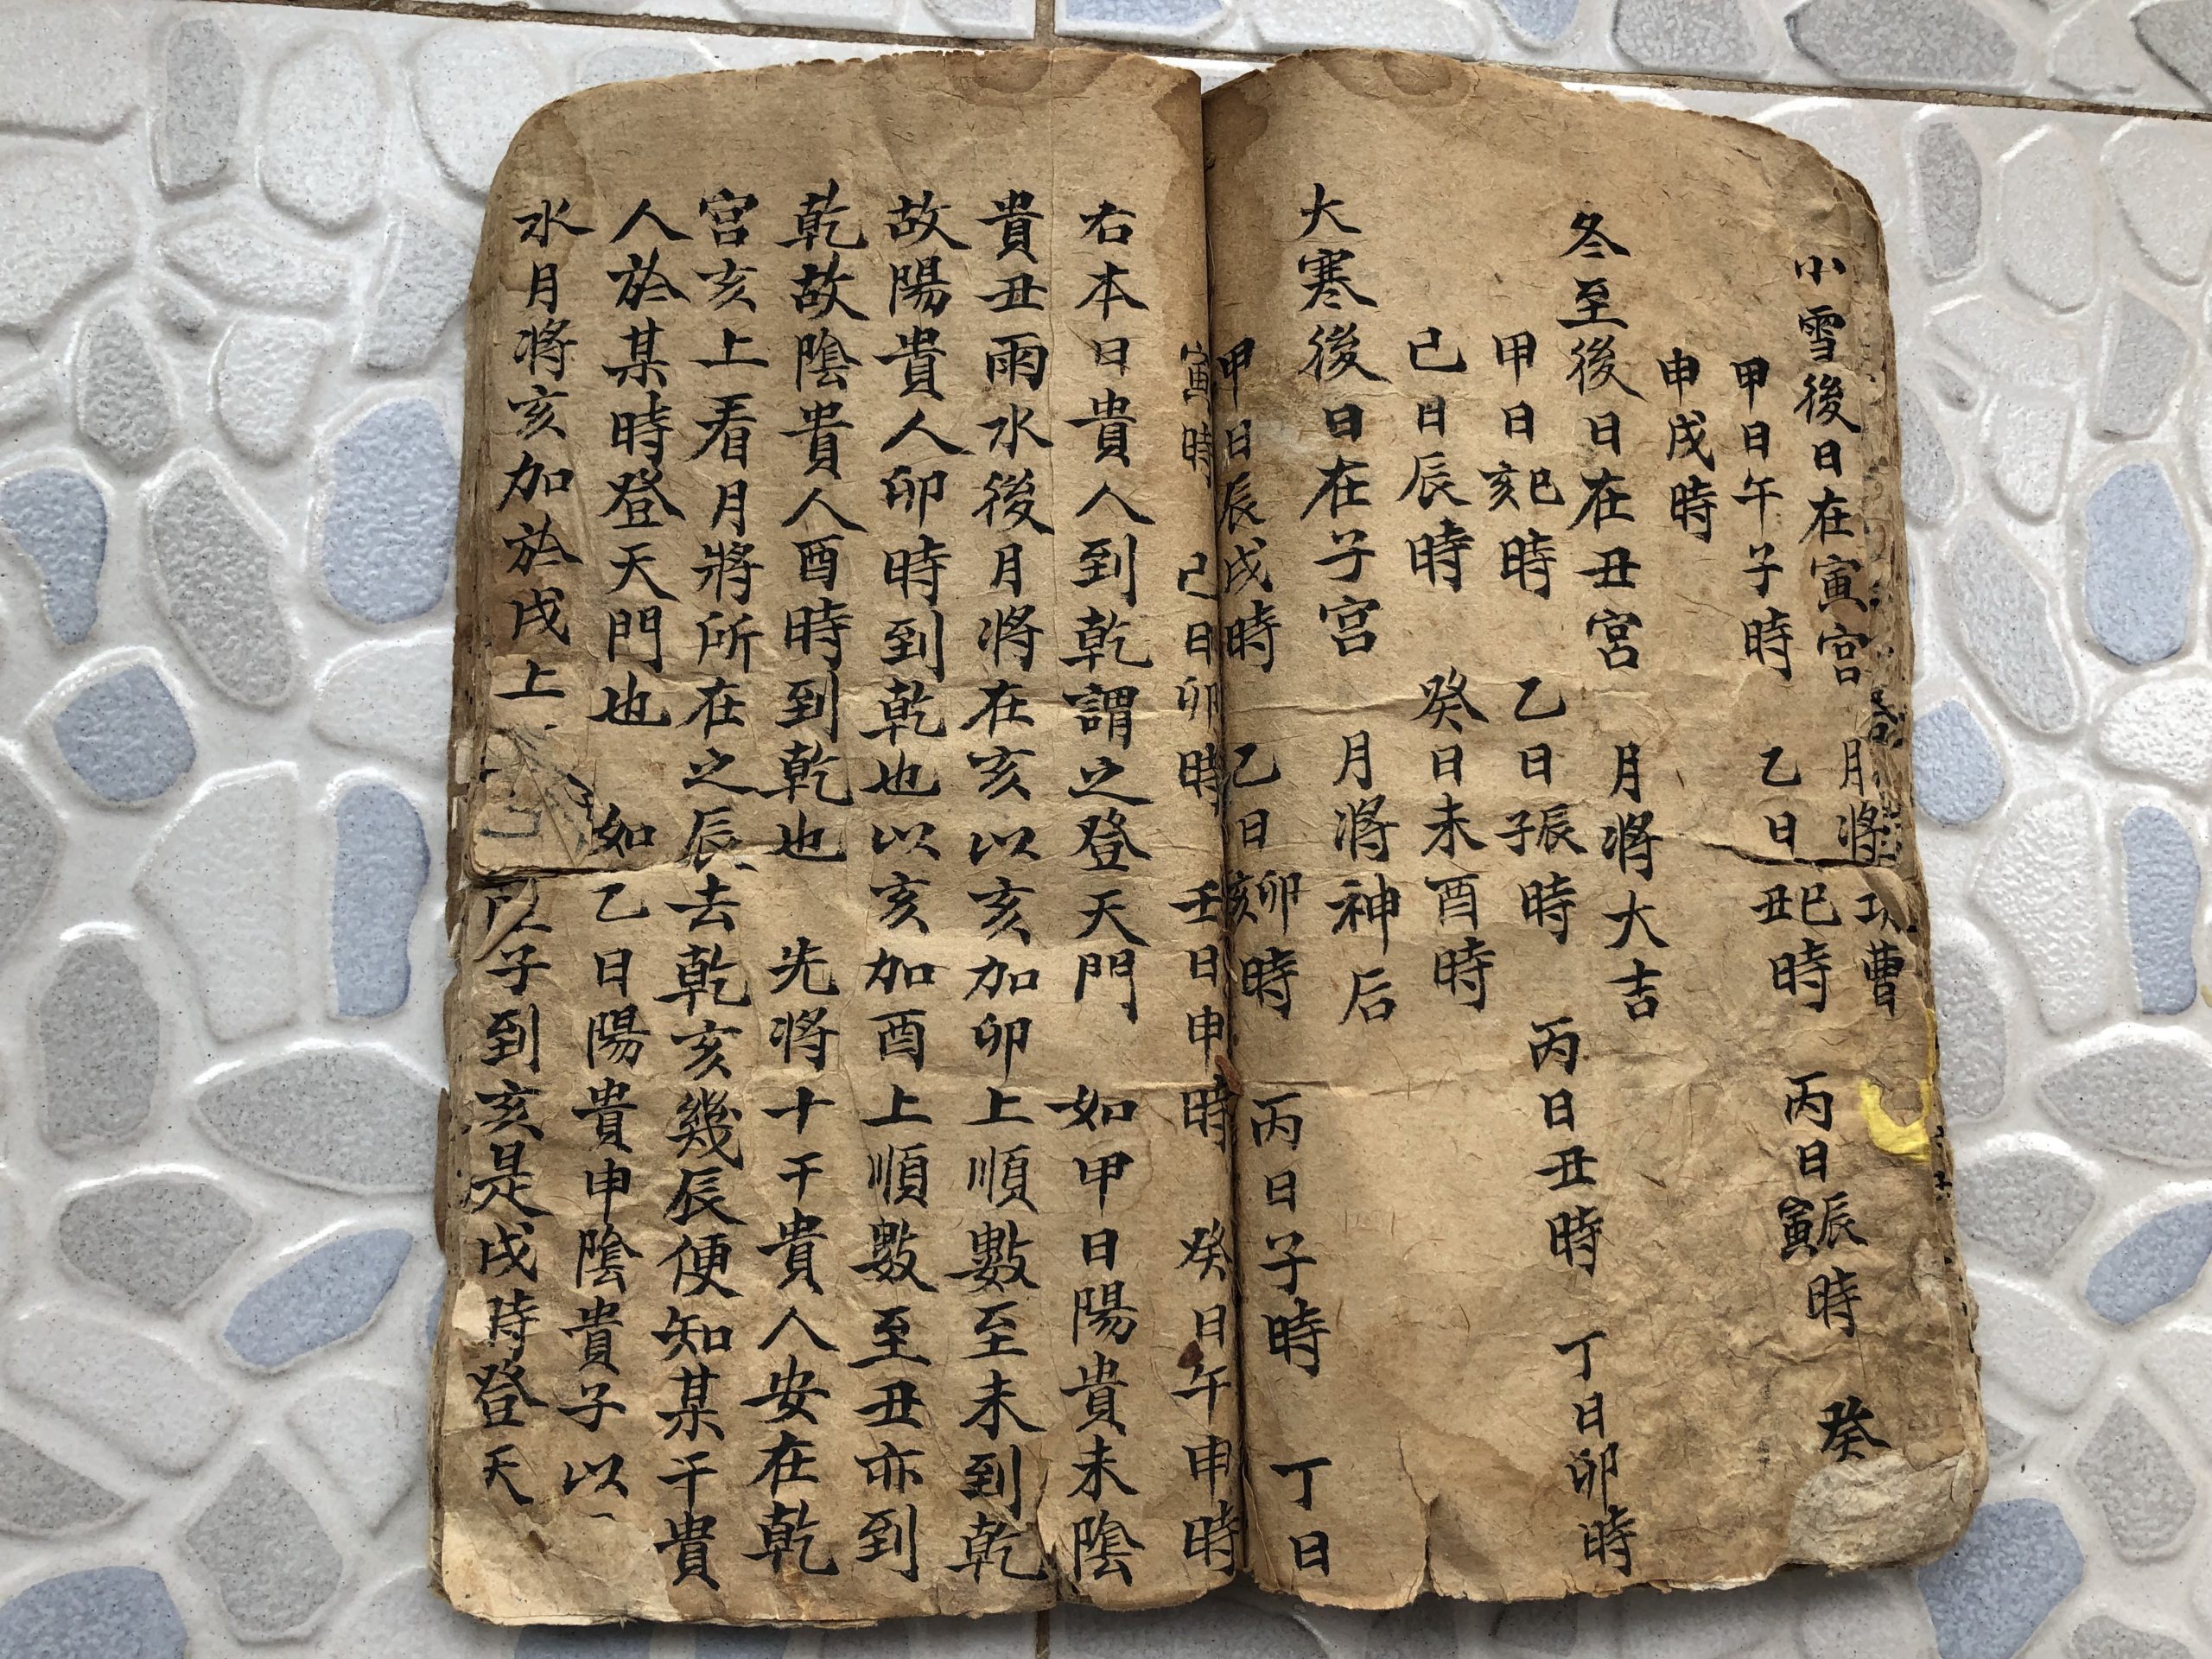 小雪後日在寅宮 月將功曹
甲日午子時 乙日丑巳時 丙日寅辰時 癸
申戌時
冬至後日在丑宮 月將大吉
甲日亥巳時 乙日子辰時 丙日丑時 丁日卯時
己日辰時 癸日未酉時
大寒後日在子宮 月將神后
甲日辰戌時 乙日亥卯時 丙日子時 丁日
寅時 己日卯時 壬日申時 癸日午申時
右本日貴人到乾謂之登天門 如甲日陽貴未陰
貴丑雨水後月將在亥以亥加卯上順數至未到乾
故陽貴人卯時到乾也以亥加酉上順數至丑亦到
乾故陰貴人酉時到乾也 先將十干貴人安在乾
宮亥上看月將所在之辰去乾亥幾辰便知某干貴
人於某時登天門也 如乙日陽貴申陰貴子以
水月將亥加於戌上 子到亥是戌時登天